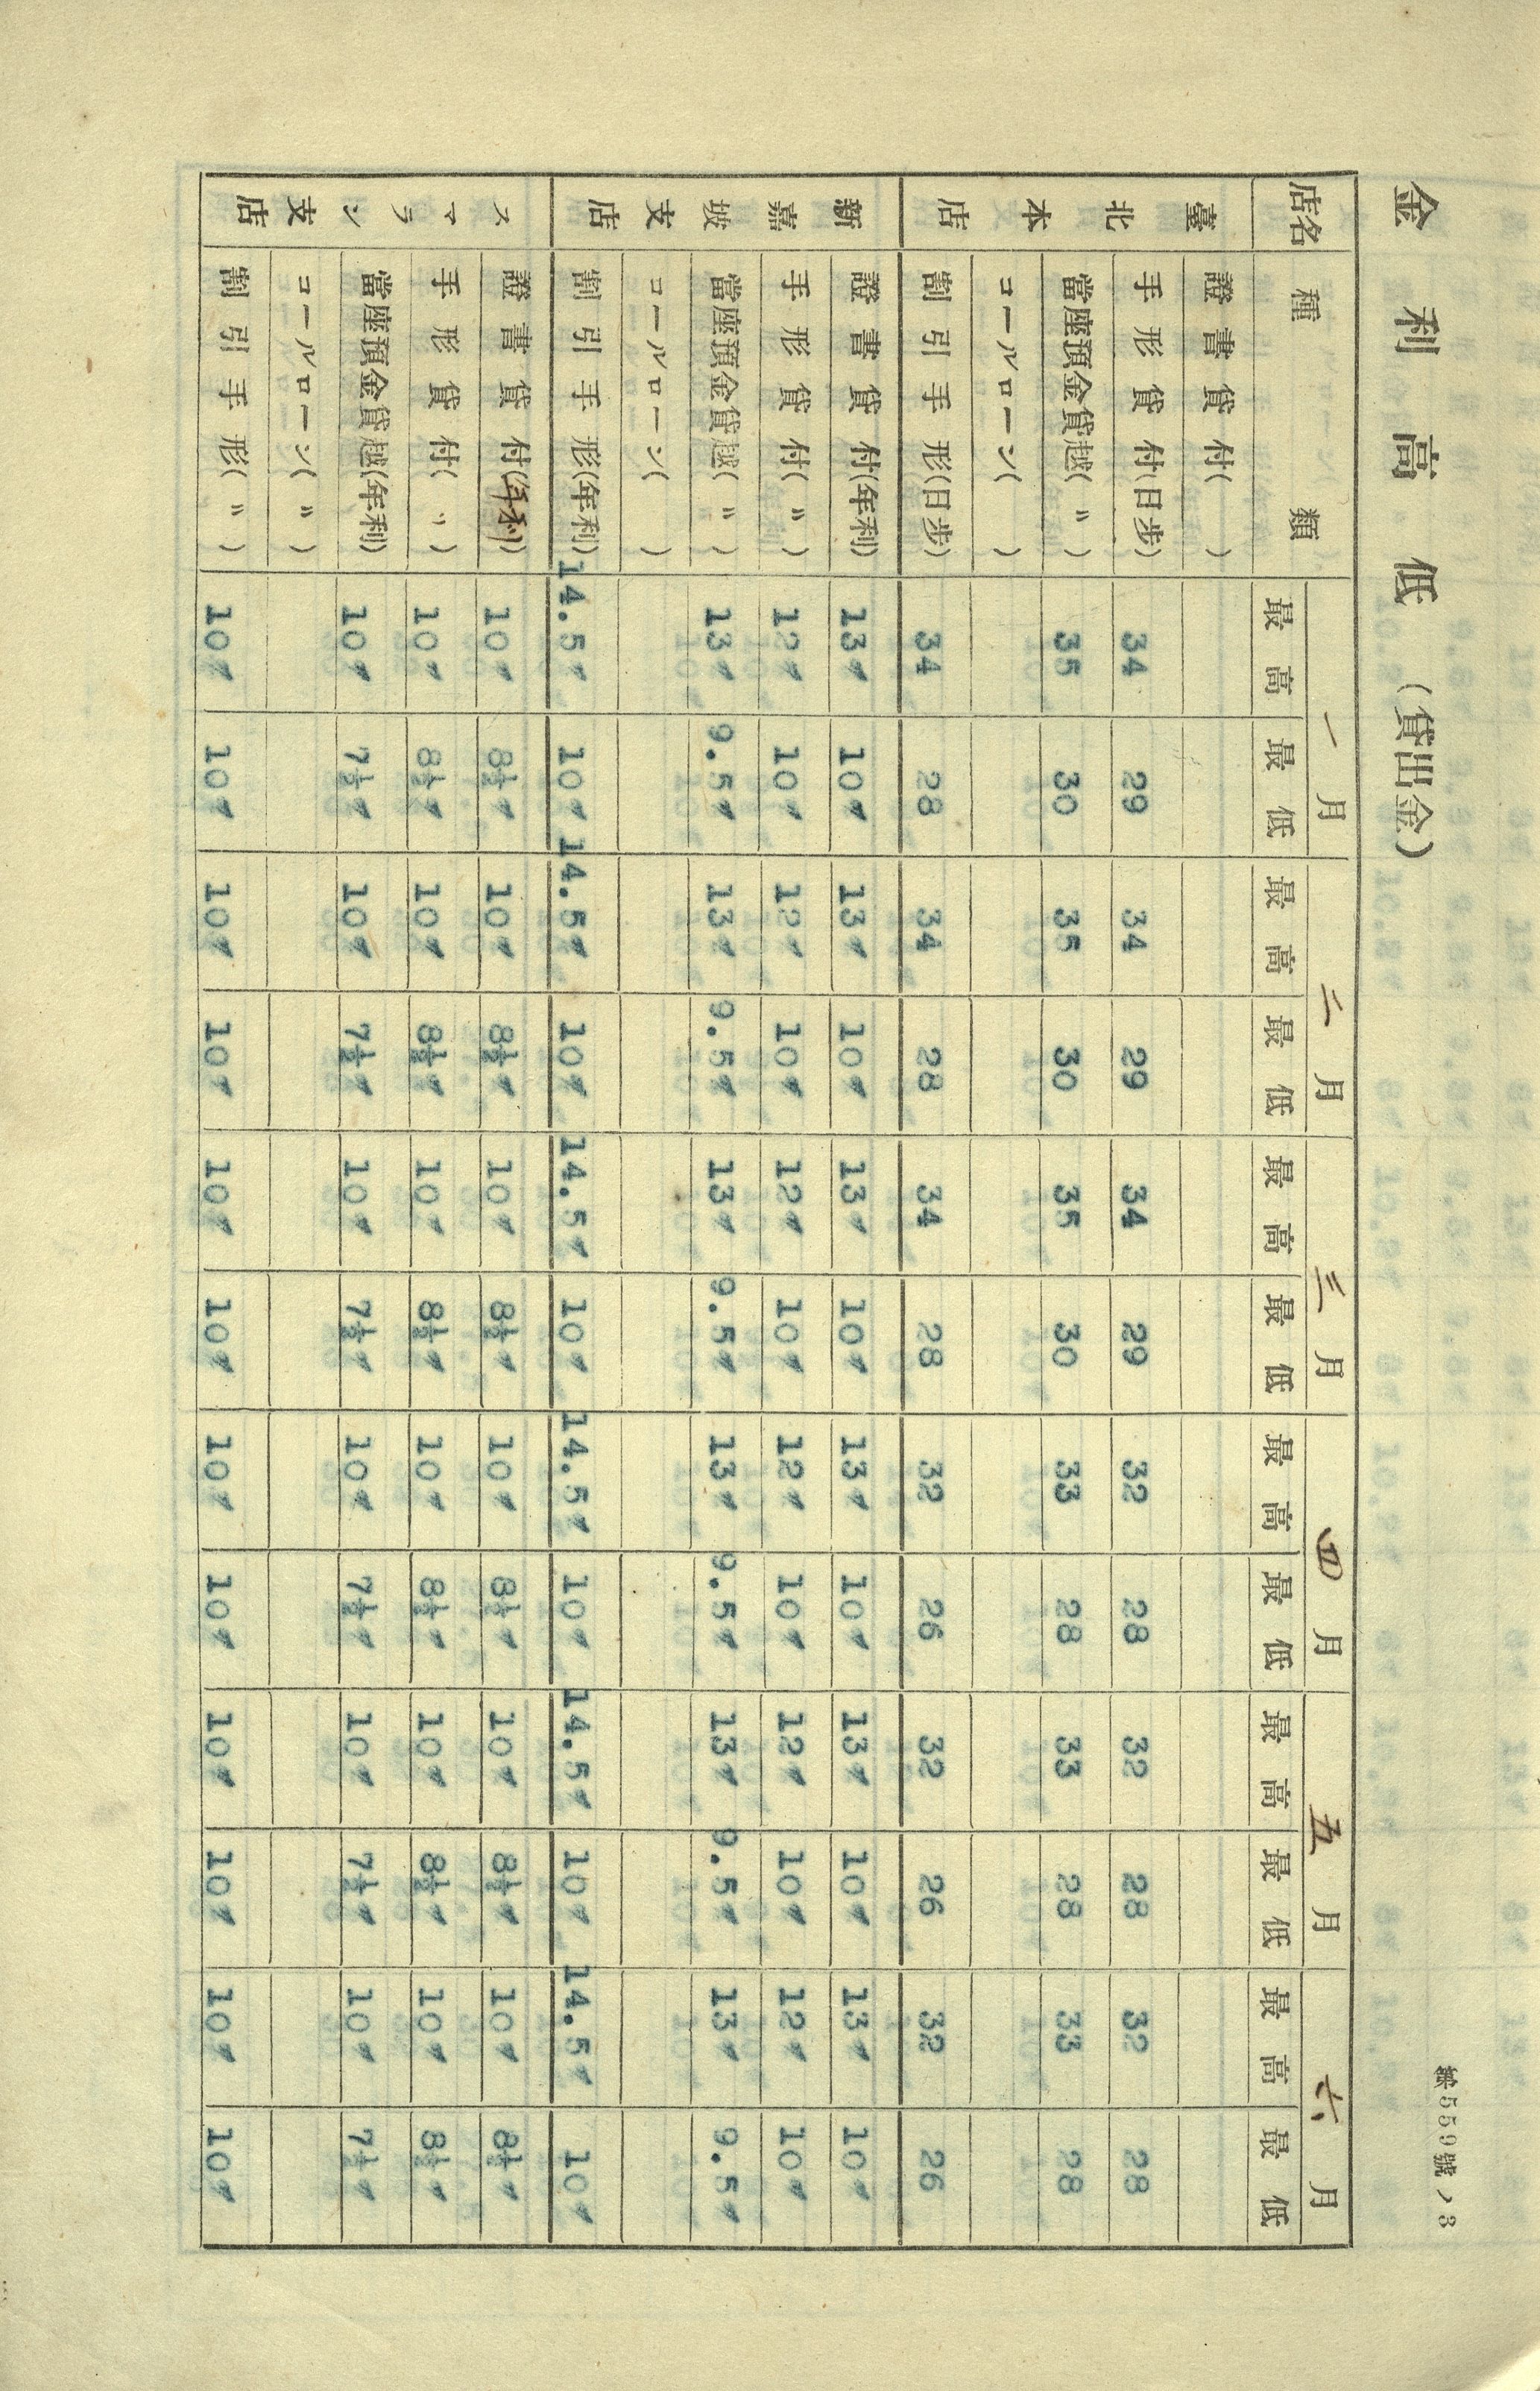 金利高低（貸出金）
第559號ノ3
店名 種類 一月 二月 三月 四月 五月 六月
最高 最低 最高 最低 最高 最低 最高 最低 最高 最低 最高 最低
臺北本店
證書貸付( )
手形貸付(日歩) 34 29 34 29 34 29 32 28 32 28 32 28
當座預金貸越( 〃 ) 35 30 35 30 35 30 33 28 33 28 33 28
コールローン( )
割引手形(日歩) 34 28 34 28 34 28 32 26 32 26 32 26
新嘉坡支店
證書貸付(年利) 13〃 10〃 13〃 10〃 13〃 10〃 13〃 10〃 13〃 10〃 13〃 10〃
手形貸付( 〃 ) 12〃 10〃 12〃 10〃 12〃 10〃 12〃 10〃 12〃 10〃 12〃 10〃
當座預金貸越( 〃 ) 13〃 9.5〃 13〃 9.5〃 13〃 9.5〃 13〃 9.5〃 13〃 9.5〃 13〃 9.5〃
コールローン( )
割引手形(年利) 14.5〃 10〃 14.5〃 10〃 14.5〃 10〃 14.5〃 10〃 14.5〃 10〃 14.5〃 10〃
スマラン支店
證書貸付(年利) 10〃 8½〃 10〃 8½〃 10〃 8½〃 10〃 8½〃 10〃 8½〃 10〃 8½〃
手形貸付( 〃 ) 10〃 8½〃 10〃 8½〃 10〃 8½〃 10〃 8½〃 10〃 8½〃 10〃 8½〃
當座預金貸越(年利) 10〃 7½〃 10〃 7½〃 10〃 7½〃 10〃 7½〃 10〃 7½〃 10〃 7½〃
コールローン( 〃 )
割引手形( 〃 ) 10〃 10〃 10〃 10〃 10〃 10〃 10〃 10〃 10〃 10〃 10〃 10〃